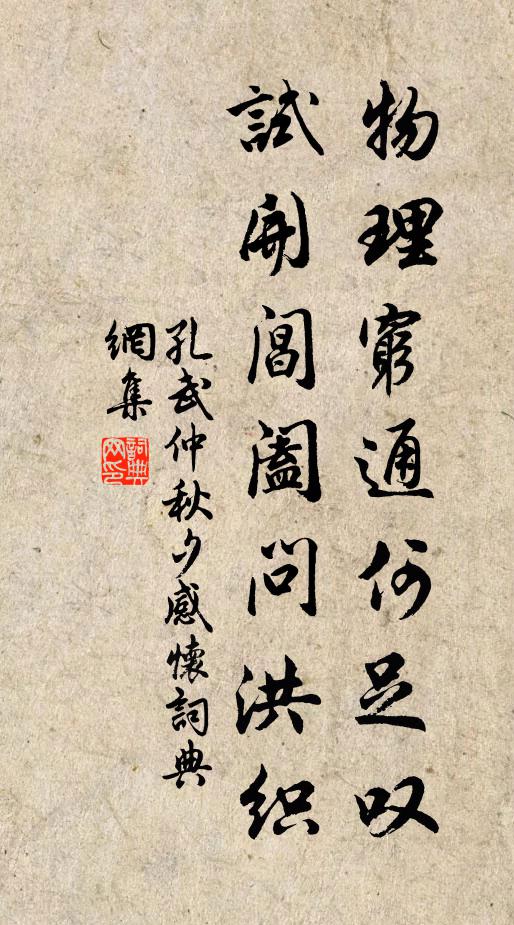 物理窮通何足叹
試開閶闔問洪织
孔武仲秋夕感懷詞典
網集
詞典網印